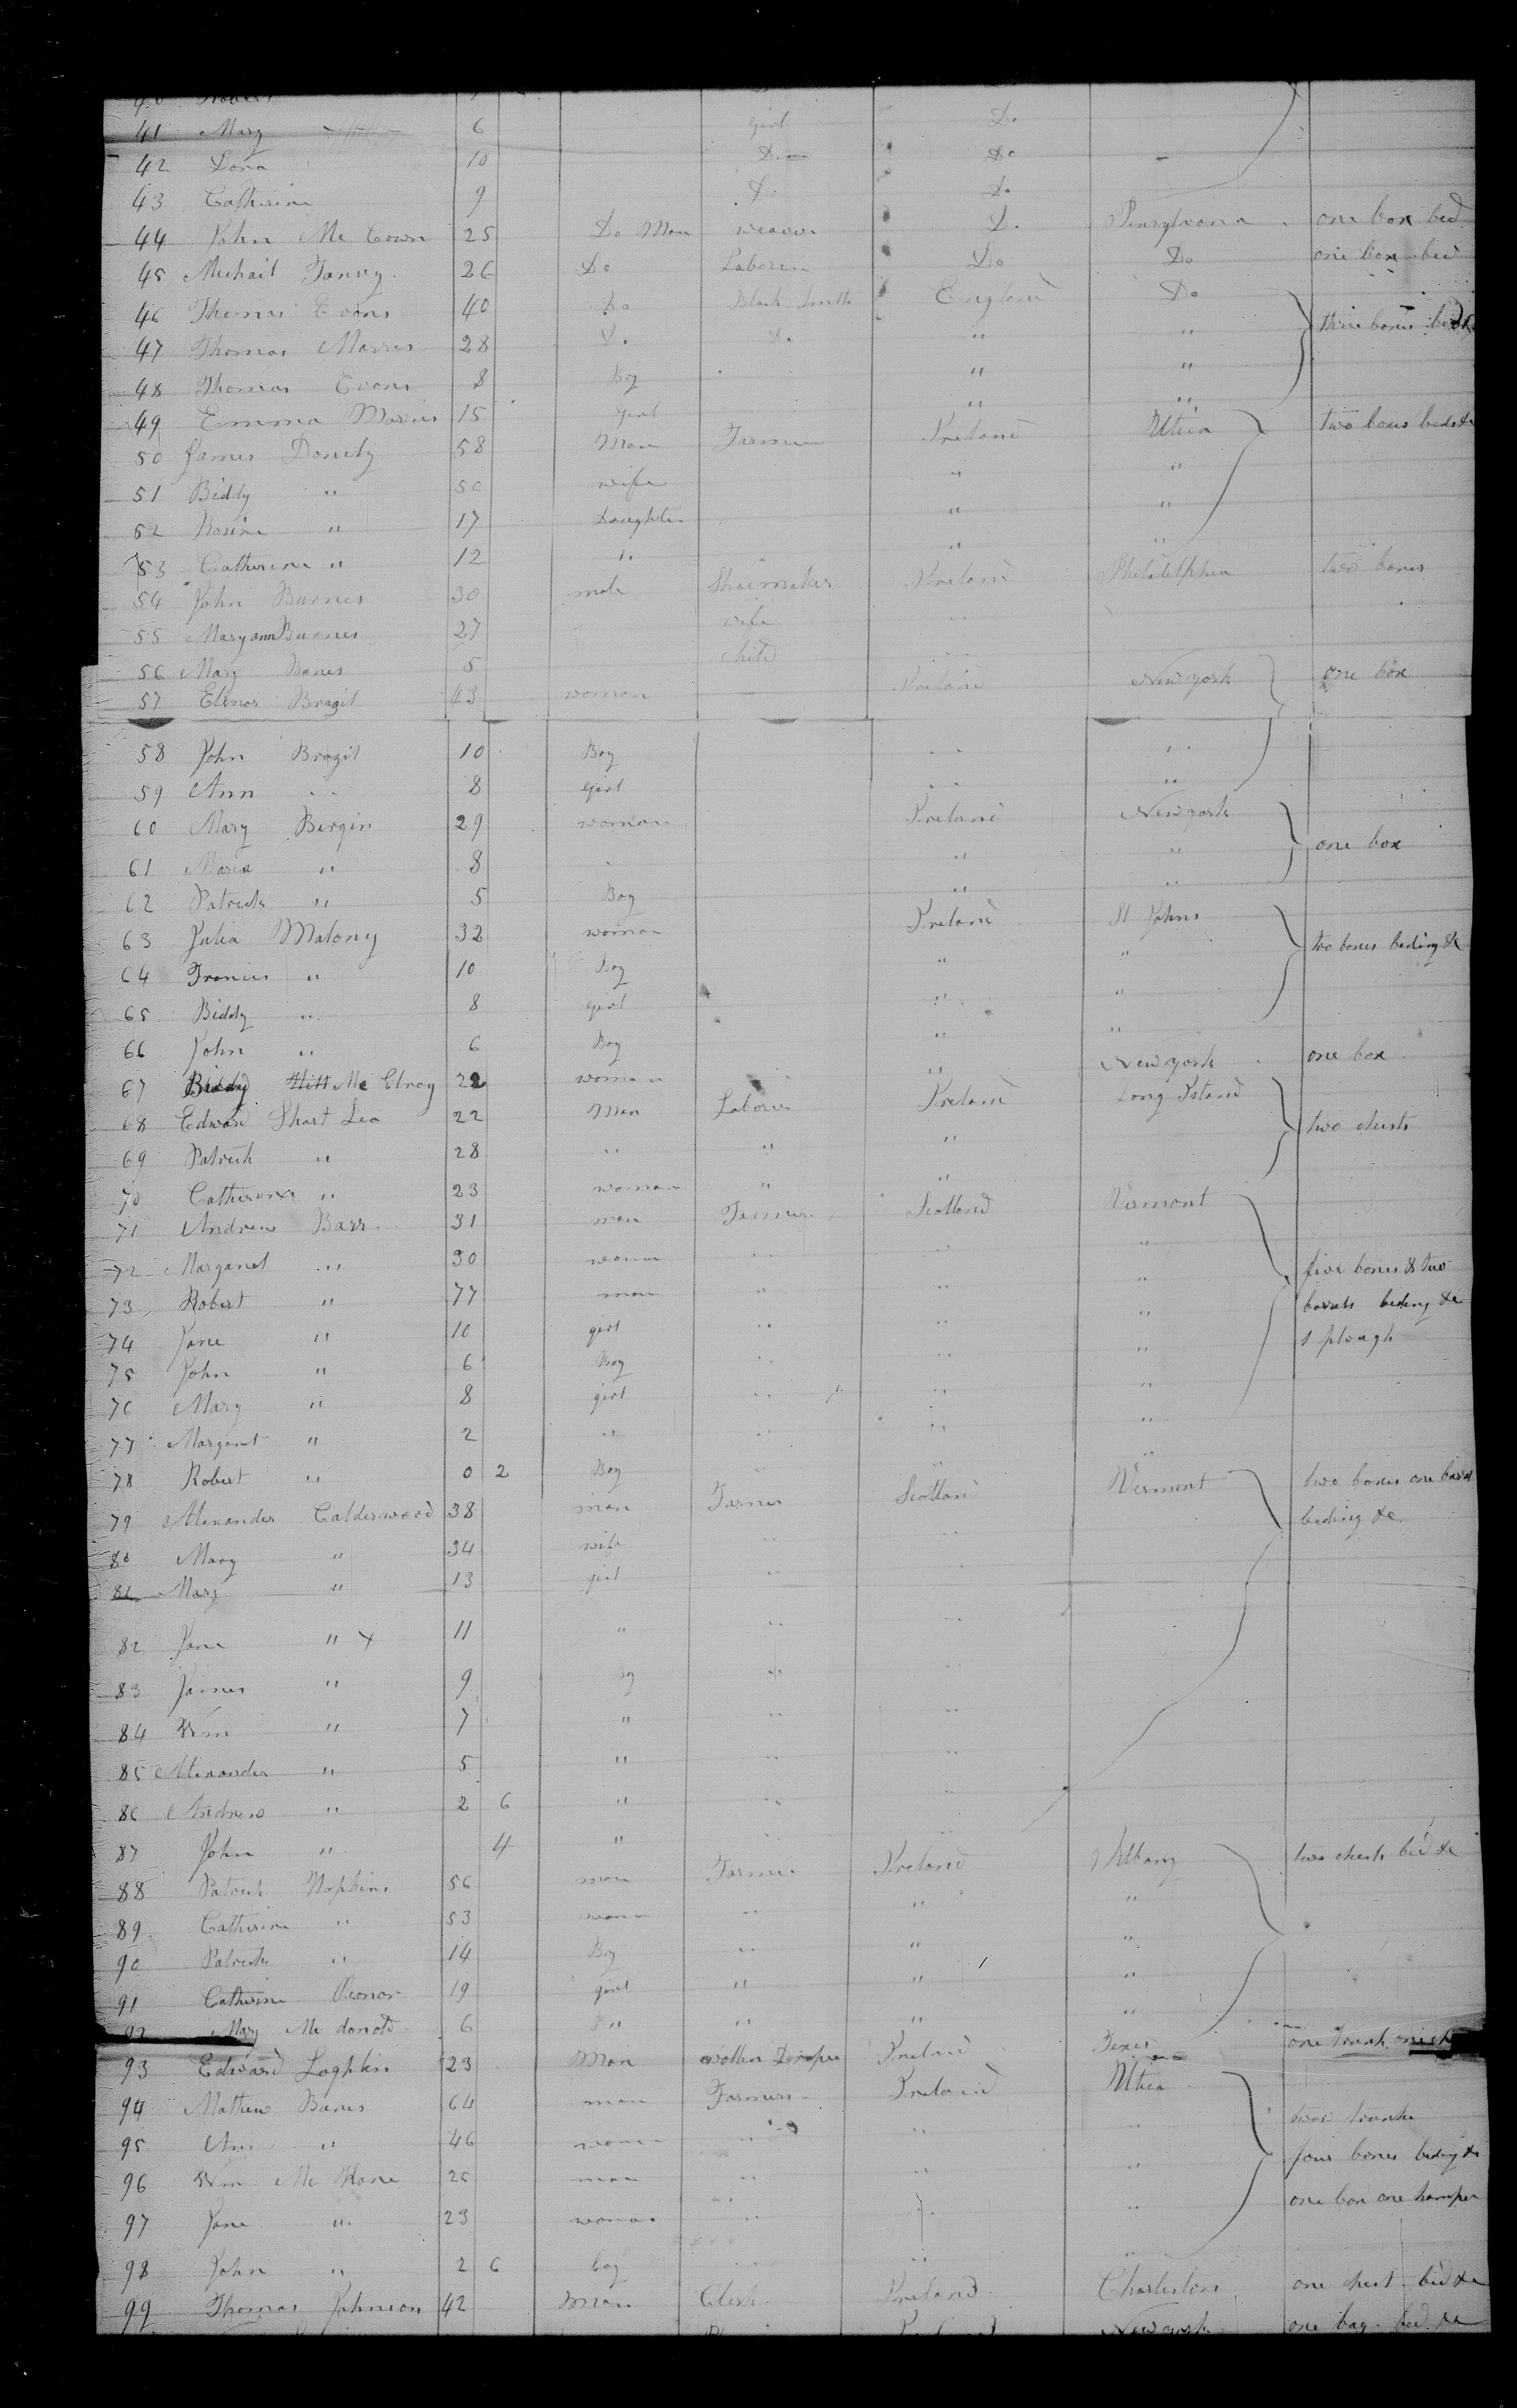 41 Mary 6 Girl Do
42 Dora 10 Do Do
43 Catherine 9 Do Do
44 John Mc Cown 25 Do Man weaver Do Pensylvana one box bed
45 Michail 26 Do Laborer Do Do one box bed
46 Thomas Evans 40 Do Black Smith England Do
47 Thomas Morris 28 Do Do " " three boxes beds
48 Thomas Evans 8 Boy " "
49 Emma Morris 15 Girl " "
50 James Donety 58 Man Farmer Ireland Utica two boxes beds &c
51 Biddy " 50 wife " "
52 Rosina " 17 Daughter " "
53 Catherine " 12 " " "
54 John Barnes 30 male Shoemaker Ireland Philadelphia two boxes
55 Maryann Burnes 27 wife "
56 Mary Banes 5 child "
57 Elenor Brazil 43 woman — Ireland New york one box
58 John Brazil 10 Boy " "
59 Ann " 8 girl " "
60 Mary Bergin 29 woman Ireland New york
61 Maria " 8 " " one box
62 Patrick " 5 Boy " "
63 Julia Malony 32 woman Ireland St Johns
64 Francis " 10 Boy " " two boxes beding &c
65 Biddy " 8 girl " "
66 John " 6 Boy " "
67 Biddy Mc Elroy 22 woman " New york one box
68 Edward Short Lea 22 Man Laborer Ireland Long Island
69 Patrick " 28 " " " two chests
70 Catherine " 23 woman " "
71 Andrew Barr 31 man Farmer Scotland Vermont
72 Margaret " 30 woman " " "
73 Robert " 77 man " " " five boxes & two
74 Jane " 10 girl " " " barrels beding &c
75 John " 6 Boy " " " 1 plough
76 Mary " 8 girl " " "
77 Margaret " 2 " " " "
78 Robert " 0 2 Boy " " "
79 Alexander Calderwood 38 man Farmer Scotland Vermont two boxes one barrel
80 Mary " 34 wife " " beding &c
81 Mary " 13 girl " "
82 Jane " x 11 " " "
83 James " 9 Boy " "
84 Wm " 7 " " "
85 Alexander " 5 " " "
86 Andrew " 2 6 " " "
87 John " 4 " " "
88 Patrick Hopkins 56 man Farmer Ireland Albany two chests bed &c
89 Catherine " 53 woman " " "
90 Patrick " 14 Boy " " "
91 Catherine Oconor 19 girl " " "
92 Mary Mc donold 6 " " " "
93 Edward Loghlin 23 Man wollen Draper Ireland Texes one trunk
94 Mathew Banes 64 man Farmers Ireland Utica
95 Ann " 46 woman " " " two trunks
96 Wm Mc Kane 25 man " " " four boxes beding &c
97 Jane " 23 woman " " " one box one hamper
98 John " 2 6 boy " " "
99 Thomas Johnson 42 Man Clerk Ireland Charleston one chest bed &c
New york one bag bed &c